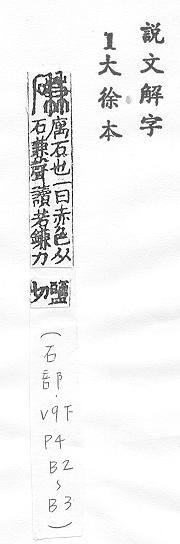 説文解字
1大徐本
磏
厲石也一曰赤色从
石兼聲讀若鎌力
鹽
切
(石部.V9下P4B2~B3)